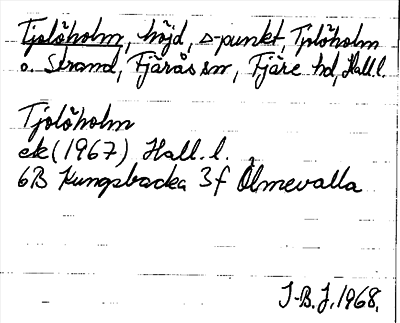 Tjolöholm, höjd, △-punkt, Tjolöholm
o. Strand, Fjärås sn, Fjäre hd, Hall. l.
Tjolöholm
ek (1967) Hall. l.
6B Kungsbacka 3f Ölmevalla
J-B. J. 1968.